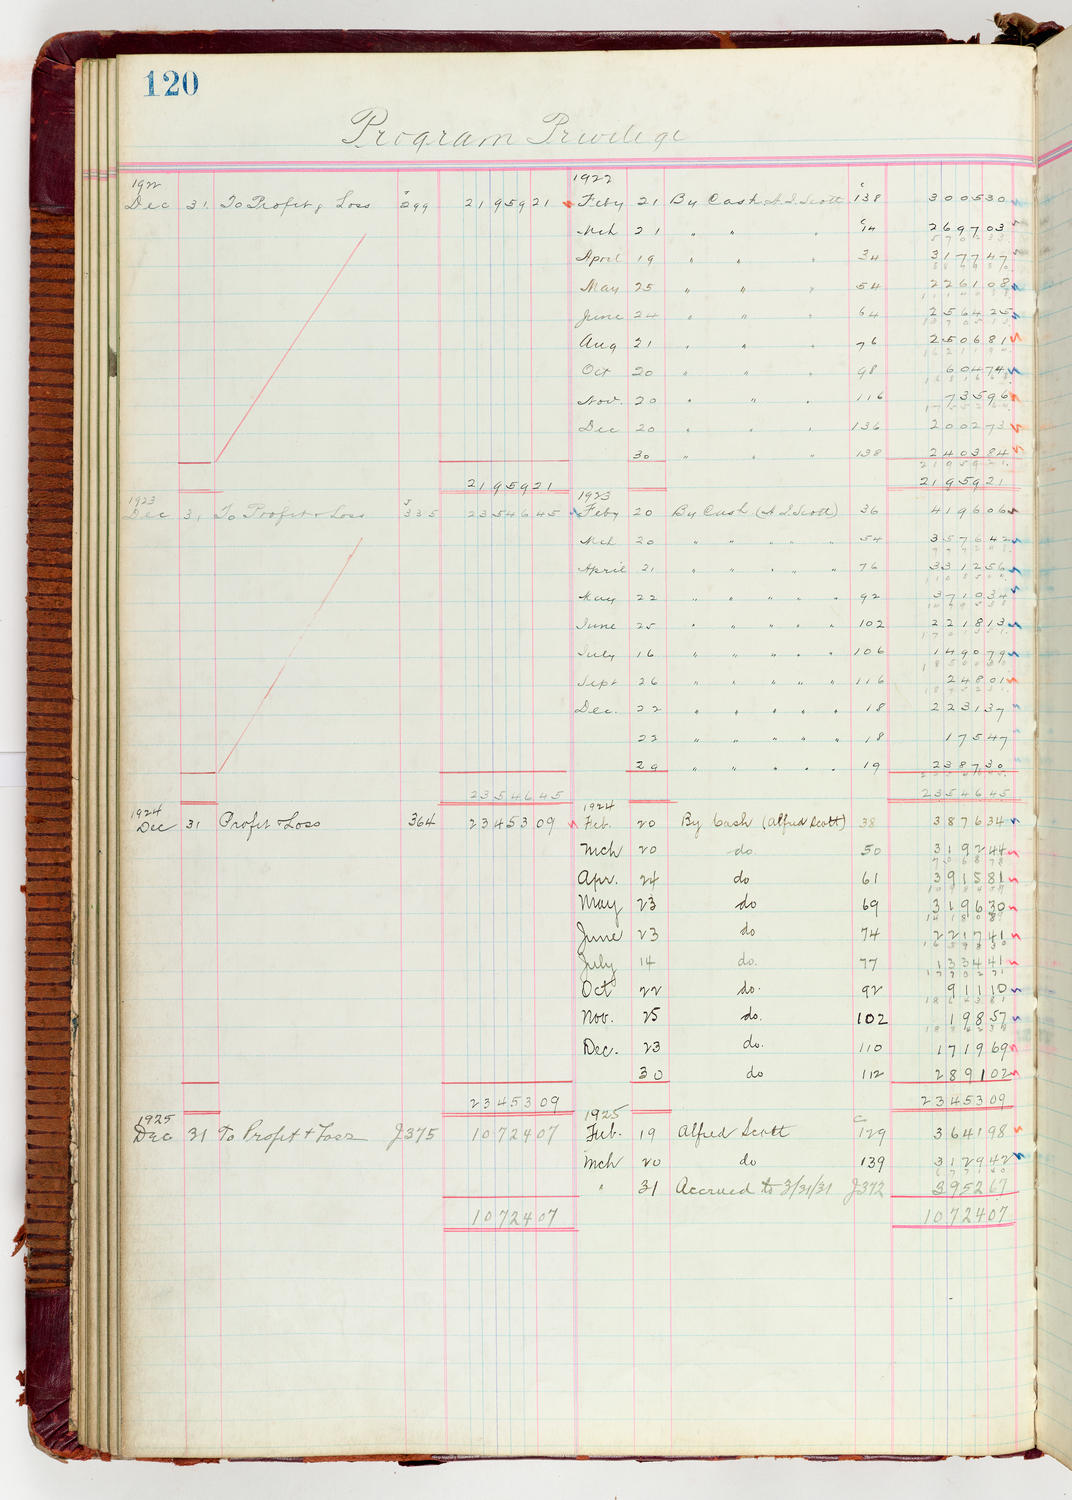 120
Program Privilege
1922 1922
Dec 31 To Profit & Loss J299 2195921 Feby 21 By Cash H I Scott C138 300530
Mch 21 " " " C14 269703
570233
April 19 " " " 34 317747
887980
May 25 " " " 54 226108
1114088
June 24 " " " 64 256425
1370513
Aug 21 " " " 76 250681
1621194
Oct 20 " " " 98 60474
1681668
Nov. 20 " " " 116 73596
1755264
Dec 20 " " " 136 200273
30 " " " 138 240384
2195921
2195921 2195921
1923 1923
Dec 31 To Profit & Loss J335 2354645 Feby 20 By Cash (H I Scott) 36 419606
Mch 20 " " " " " 54 357642
777248
April 21 " " " " " 76 331256
1108504
May 22 " " " " " 92 371034
1479538
June 25 " " " " " 102 221813
1701351
July 16 " " " " " 106 149079
1850430
Sept 26 " " " " " 116 24801
1875231
Dec. 22 " " " " " 18 223137
22 " " " " " 18 17547
29 " " " " " 19 238730
2354645 2354645
1924 1924
Dec 31 Profit & Loss 364 2345309 Feb. 20 By Cash (Alfred Scott) 38 387634
Mch 20 do 50 319244
706878
Apr. 24 do 61 391581
1098459
May 23 do 69 319630
1418089
June 23 do 74 221741
1639830
July 14 do. 77 133441
1773271
Oct 22 do. 92 91110
1864381
Nov. 25 do. 102 19857
1884238
Dec. 23 do. 110 171969
30 do 112 289102
2345309 2345309
1925 1925
Dec 31 To Profit & Loss J375 1072407 Feb. 19 Alfred Scott C129 364198
Mch 20 do 139 312942
677140
" 31 Accrued to 3/31/31 J372 395267
1072407 1072407